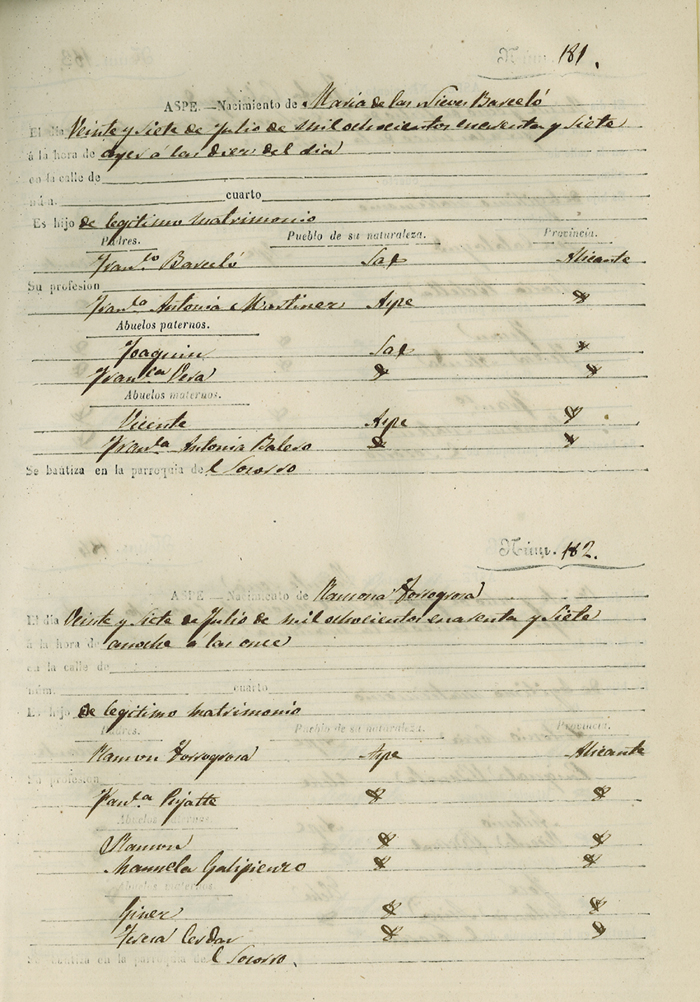 Núm. 181.
ASPE.—Nacimiento de Maria de las Nieves Barceló
El dia Veinte y siete de Julio de mil ochocientos cuarenta y siete
á la hora de ayer á las diez del dia
en la calle de
núm. cuarto
Es hijo de legitimo matrimonio
Padres. Pueblo de su naturaleza. Provincia.
Fran.co Barceló Sax Alicante
Su profesion
Fran.ca Antonia Martinez Aspe
Abuelos paternos.
Joaquin Sax
Fran.ca Vera
Abuelos maternos.
Vicente Aspe
Fran.ca Antonia
Se bautiza en la parroquia del Socorro
Núm. 182.
ASPE.—Nacimiento de Ramona Torregrosa
El dia Veinte y siete de Julio de mil ochocientos cuarenta y siete
á la hora de anoche á las once
en la calle de
núm. cuarto
Es hijo de legitimo matrimonio
Padres. Pueblo de su naturaleza. Provincia.
Ramon Torregrosa Aspe Alicante
Su profesion
Fran.ca
Abuelos paternos.
Ramon
Manuela Galipienzo
Abuelos maternos.
Giner
Teresa Cerdan
Se bautiza en la parroquia del Socorro.